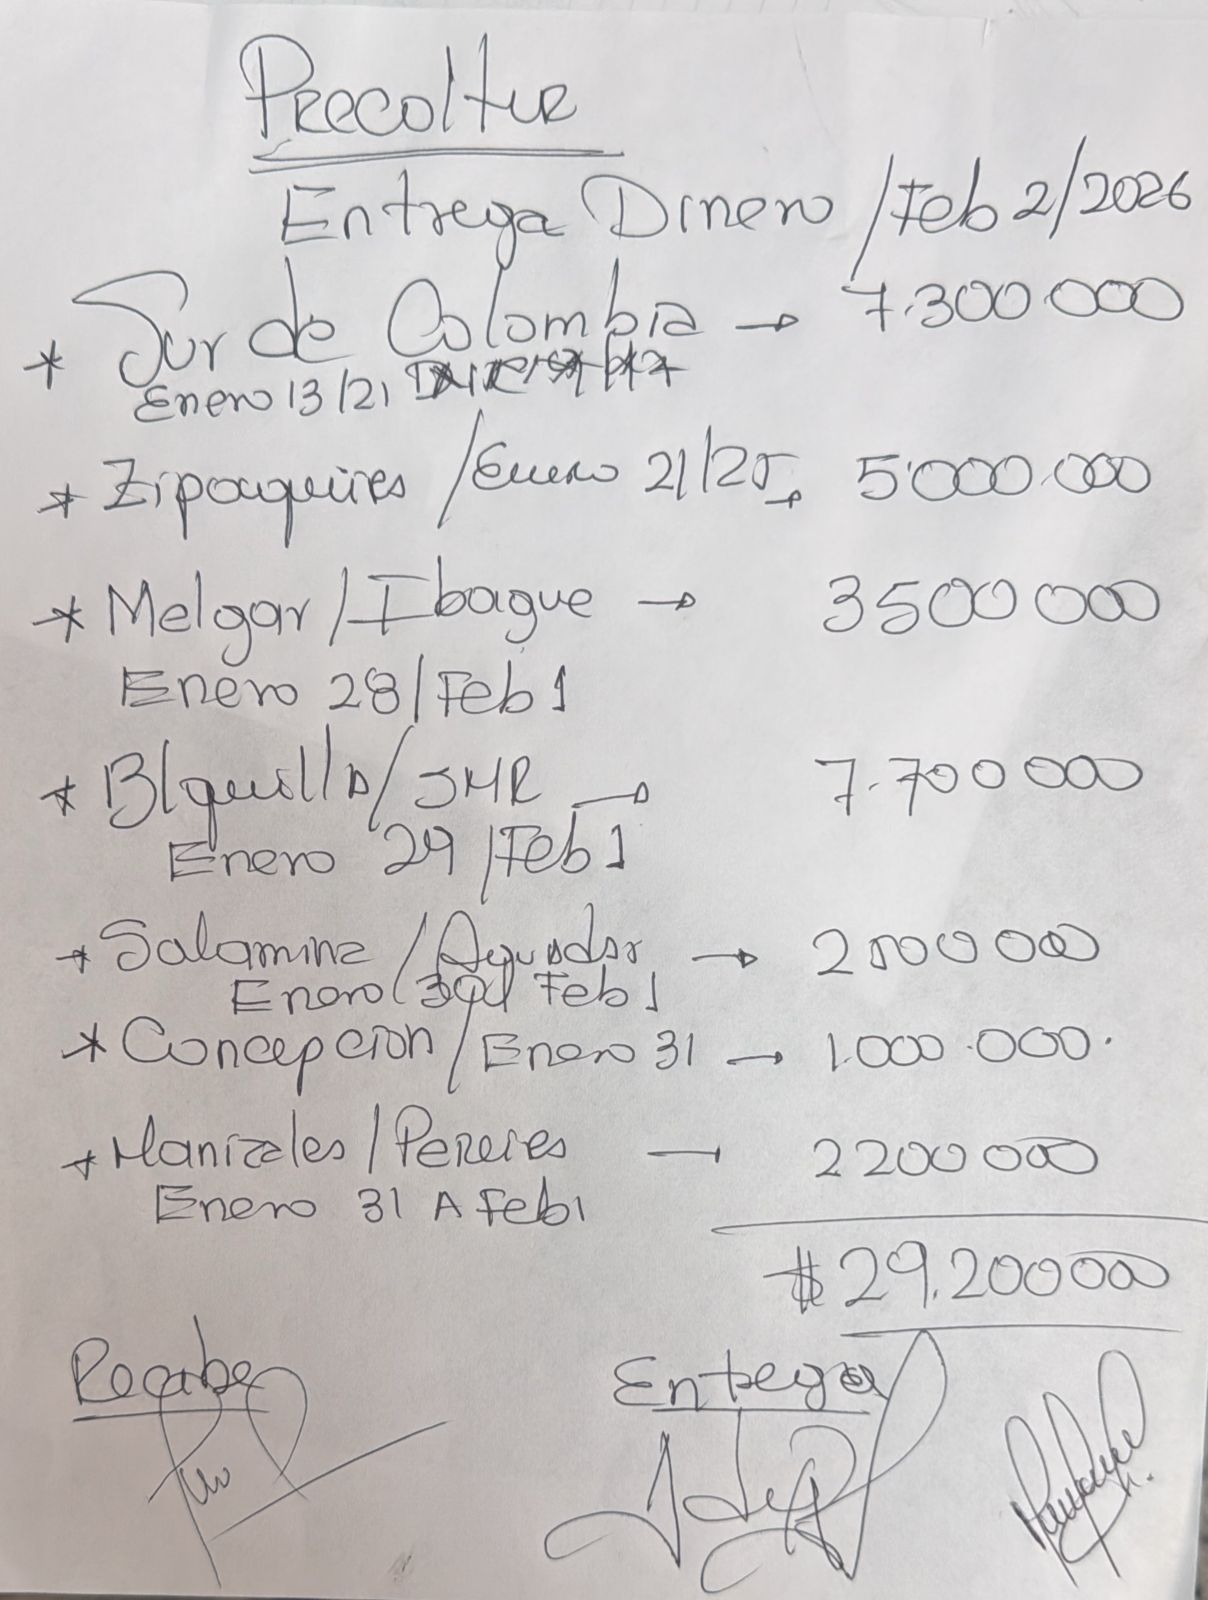 Precoltur
Entrega Dinero / Feb 2/2026
* Sur de Colombia → 7.300 000
Enero 13/21
* Zipaquires / Enero 21/25 → 5'000.000
* Melgar / Ibague → 3500 000
Enero 28/Feb 1
* B/quilla / SMR → 7.700 000
Enero 29 /Feb 1
* Salamina / Aguadas → 2500 000
Enero Feb 1
* Concepcion / Enero 31 → 1.000.000.
* Manizales / Pereira — 2200 000
Enero 31 A Feb 1
$ 29.200 000
Recibe
Entrega